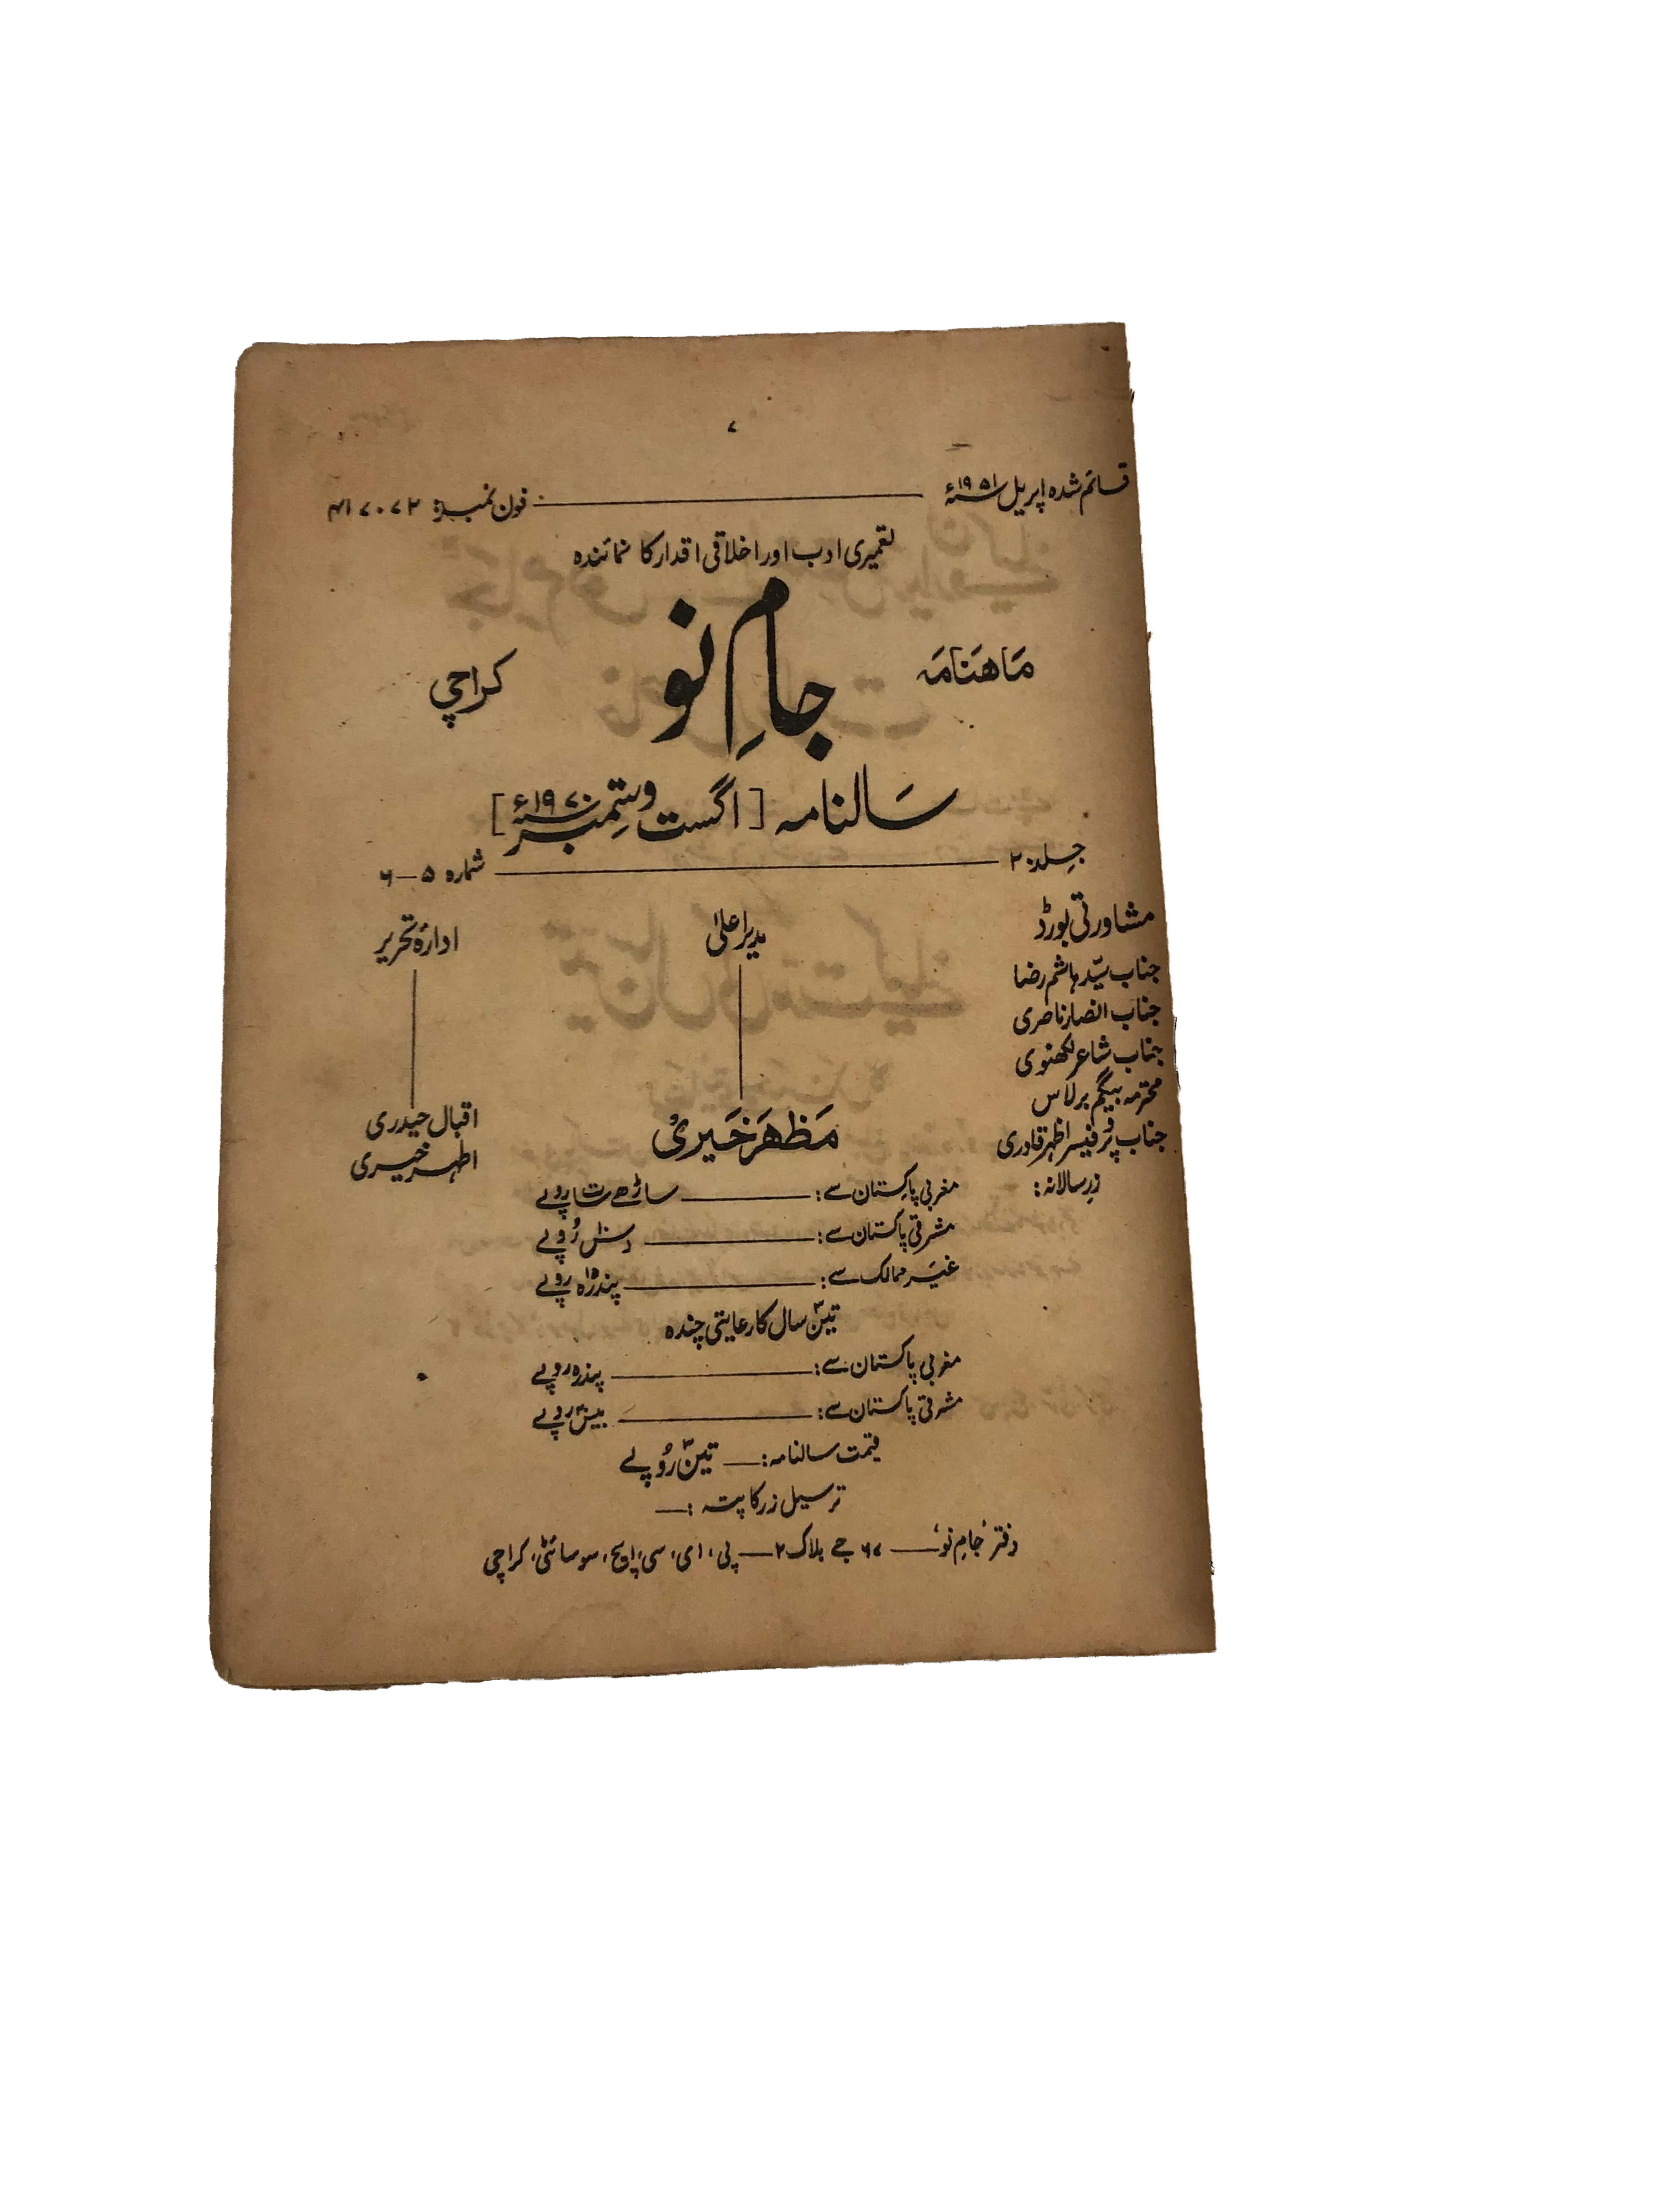 ۷
قائم شدہ اپریل ۱۹۵۱ء ـــــ فون نمبر: ۴۱۷۰۷۲
تعمیری ادب اور اخلاقی اقدار کا نمائندہ
ماھنامہ جامِ نو کراچی
سالنامہ [اگست و ستمبر ۱۹۷۰ء]
جلد ۲۰ ـــــ شمارہ ۵ــ۶
مشاورتی بورڈ
جناب سیّد ہاشم رضا
جناب انصار ناصری
جناب شاعر لکھنوی
محترمہ بیگم برلاس
جناب پروفیسر اظہر قادری
مدیر اعلیٰ
مظہر خیری
ادارۂ تحریر
اقبال حیدری
اطہر خیری
زرِ سالانہ:
مغربی پاکستان سے: ـــــ ساڑھے سات روپے
مشرقی پاکستان سے: ـــــ دس۱۰ روپے
غیر ممالک سے: ـــــ پندرہ۱۵ روپے
تین۳ سال کا رعایتی چندہ
مغربی پاکستان سے: ـــــ پندرہ روپے
مشرقی پاکستان سے: ـــــ بیس۲۰ روپے
قیمت سالنامہ: ـــ تین۳ روپے
ترسیل زر کا پتہ :ـــ
دفتر ’جامِ نو‘ ـــــ ۶۷ جے بلاک ۲ ـــ پی، ای، سی، ایچ، سوسائٹی، کراچی